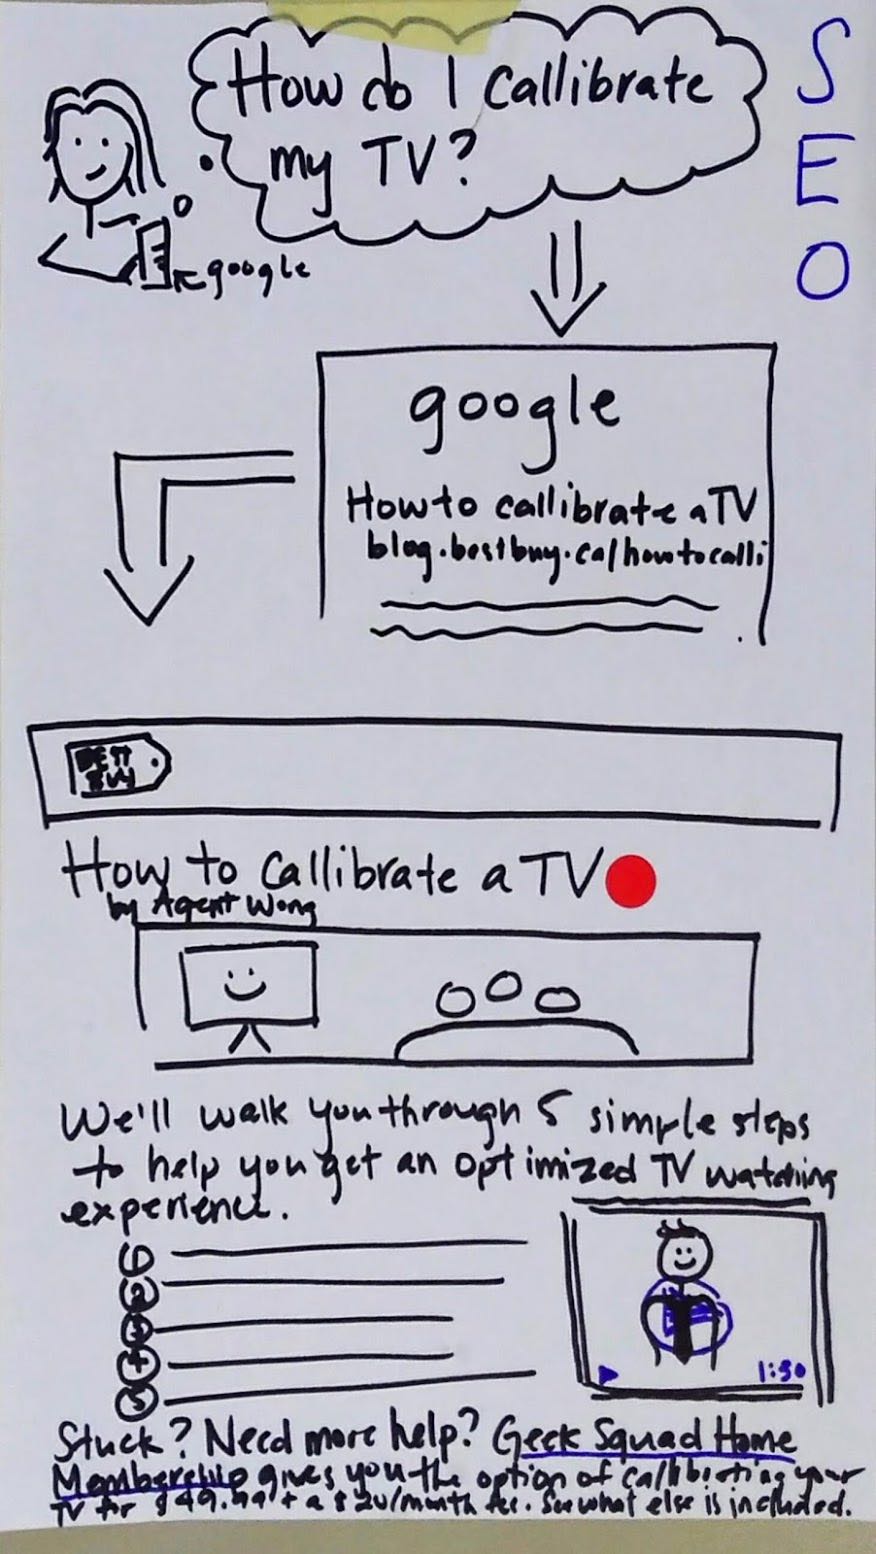 How do I callibrate
my TV?
SEO
google
google
How to callibrate a TV
blog.bestbuy.ca/howtocalli
BEST
BUY
How to callibrate a TV
by Agent Wong
We'll walk you through 5 simple steps
to help you get an optimized TV watching
experience.
1
2
3
4
5
1:30
Stuck? Need more help? Geek Squad Home
Membership gives you the option of callibrating your
TV for $49.99 + a $20/month fee. See what else is included.